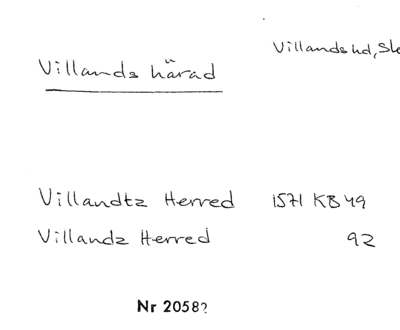 Villands hd, Sk
Villands härad
Villandtz Herred 1571 KB 49
Villandz Herred 92
Nr 2058?